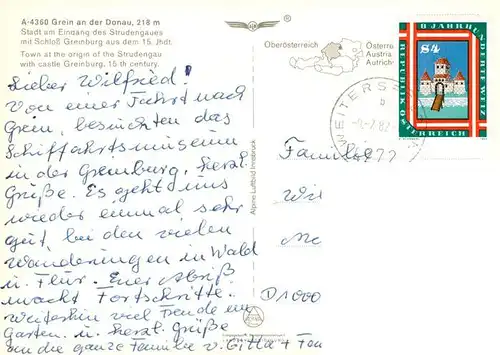 A-4360 Grein an der Donau, 218 m
Stadt am Eingang des Strudengaues
mit Schloß Greinburg aus dem 15. Jhdt.
Town at the origin of the Strudengau
with castle Greinburg, 15th century.
Lieber Wilfried!
Von einer Fahrt nach
Grein, besuchten das
Schiffahrtsmuseum
in der Greinburg, herzl.
Grüße. Es geht uns
wieder einmal sehr
gut, bei den vielen
Wanderungen in Wald
u. Flur. Euer Abriß
macht Fortschritte.
Weiterhin viel Freude im
Garten. u. herzl. Grüße
an die ganze Familie v. Gitta +
Alpine Luftbild Innsbruck
Oberösterreich
Austria
8 JAHRHUNDERTE WEIZ
S4
REPUBLIK ÖSTERREICH
b
Familie
Wil
D 1000